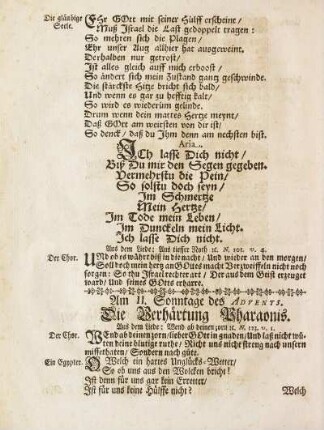 Die gläubige Seele.
EHr GOtt mit seiner Hülff erscheint /
Muß Israel die Last gedoppelt tragen:
So mehren sich die Plagen /
Ehr unser Aug allhier hat ausgeweint.
Derhalben nur getrost /
Ist alles gleich auff mich erboost /
So ändert sich mein Zustand gantz geschwinde.
Die stärckste Hitze bricht sich bald /
Und wenn es gar zu hefftig kalt /
So wird es wiederüm gelinde.
Drum wenn dein mattes Hertze meynt /
Daß GOtt am weitsten von dir ist /
So denck / daß du Ihm denn am nechsten bist.
Aria.
ICh lasse Dich nicht /
Biß Du mir den Segen gegeben.
Vermehrstu die Pein /
So solstu doch seyn /
Im Schmertze
Mein Hertze /
Im Tode mein Leben /
Im Dunckeln mein Licht.
Ich lasse Dich nicht.
Aus dem Liede: Aus tieffer Noth ꝛc. N. 101. v. 4.
Der Chor.
UNd ob es währt biß in die Nacht / Und wieder an den morgen /
Soll doch mein hertz an GOttes macht Verzweiffeln nicht noch
sorgen: So thu Israel rechter art / Der aus dem Geist erzeuget
ward / Und seines GOtts erharre.
Am II. Sonntage des ADVENTS.
Die Verhärtung Pharaonis.
Aus dem Liede: Wend ab deinen zorn ꝛc. N. 113. v. 1.
Der Chor.
WEnd ab deinen zorn / lieber GOtt in gnaden / Und laß nicht wü-
ten deine blutige ruthe / Richt uns nicht streng nach unsern
missethaten / Sondern nach güte.
Ein Egypter.
O Welch ein hartes Unglücks-Wetter /
So ob uns aus den Wolcken bricht!
Ist denn für uns gar kein Erretter /
Ist für uns keine Hülffe nicht?
Welch